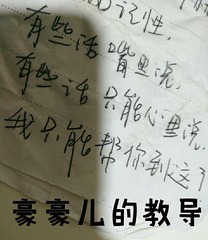 记性,
有些话嘴里说,
有些话只能心里说.
我只能帮你到这了
豪豪儿的教导